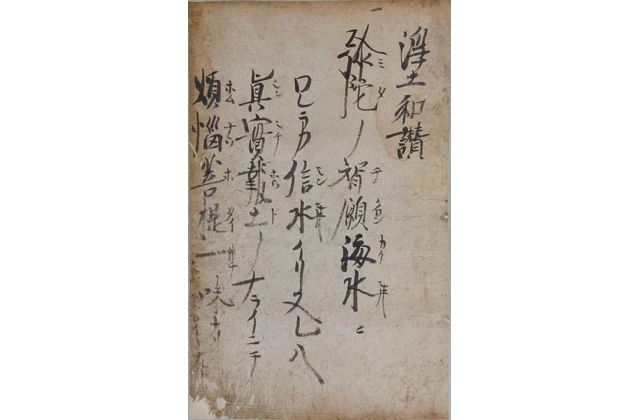 淨土和讃
一
彌陀ノ智願海水ニ
信水イリヌレハ
眞實報土ノナライニテ
煩惱菩提一味ナリ